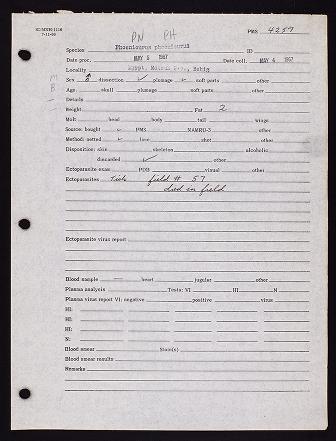 PN PH
PMS 4257
Species Phoenicurus phoenicurus ID
Date proc. MAY 5 1967 Date coll. MAY 4 1967
Locality Egypt, Bahig
Sex ♂ dissection ✓ plumage soft parts other
Age: skull plumage soft parts other
Details
Weight Fat 2
Molt head body tail wings
Source: bought PMS NAMRU-3 other
Method: netted live shot other
Disposition: skin skeleton alcoholic
discarded ✓ other
Ectoparasite exam PDB visual other
Ectoparasites Tick field # 57
died in field
Ectoparasite virus report
Blood sample — heart jugular other
Plasma analysis Tests: VI HI N
Plasma virus report VI: negative positive virus
HI:
HI:
HI:
N:
Blood smear Stain(s)
Blood smear results
Remarks